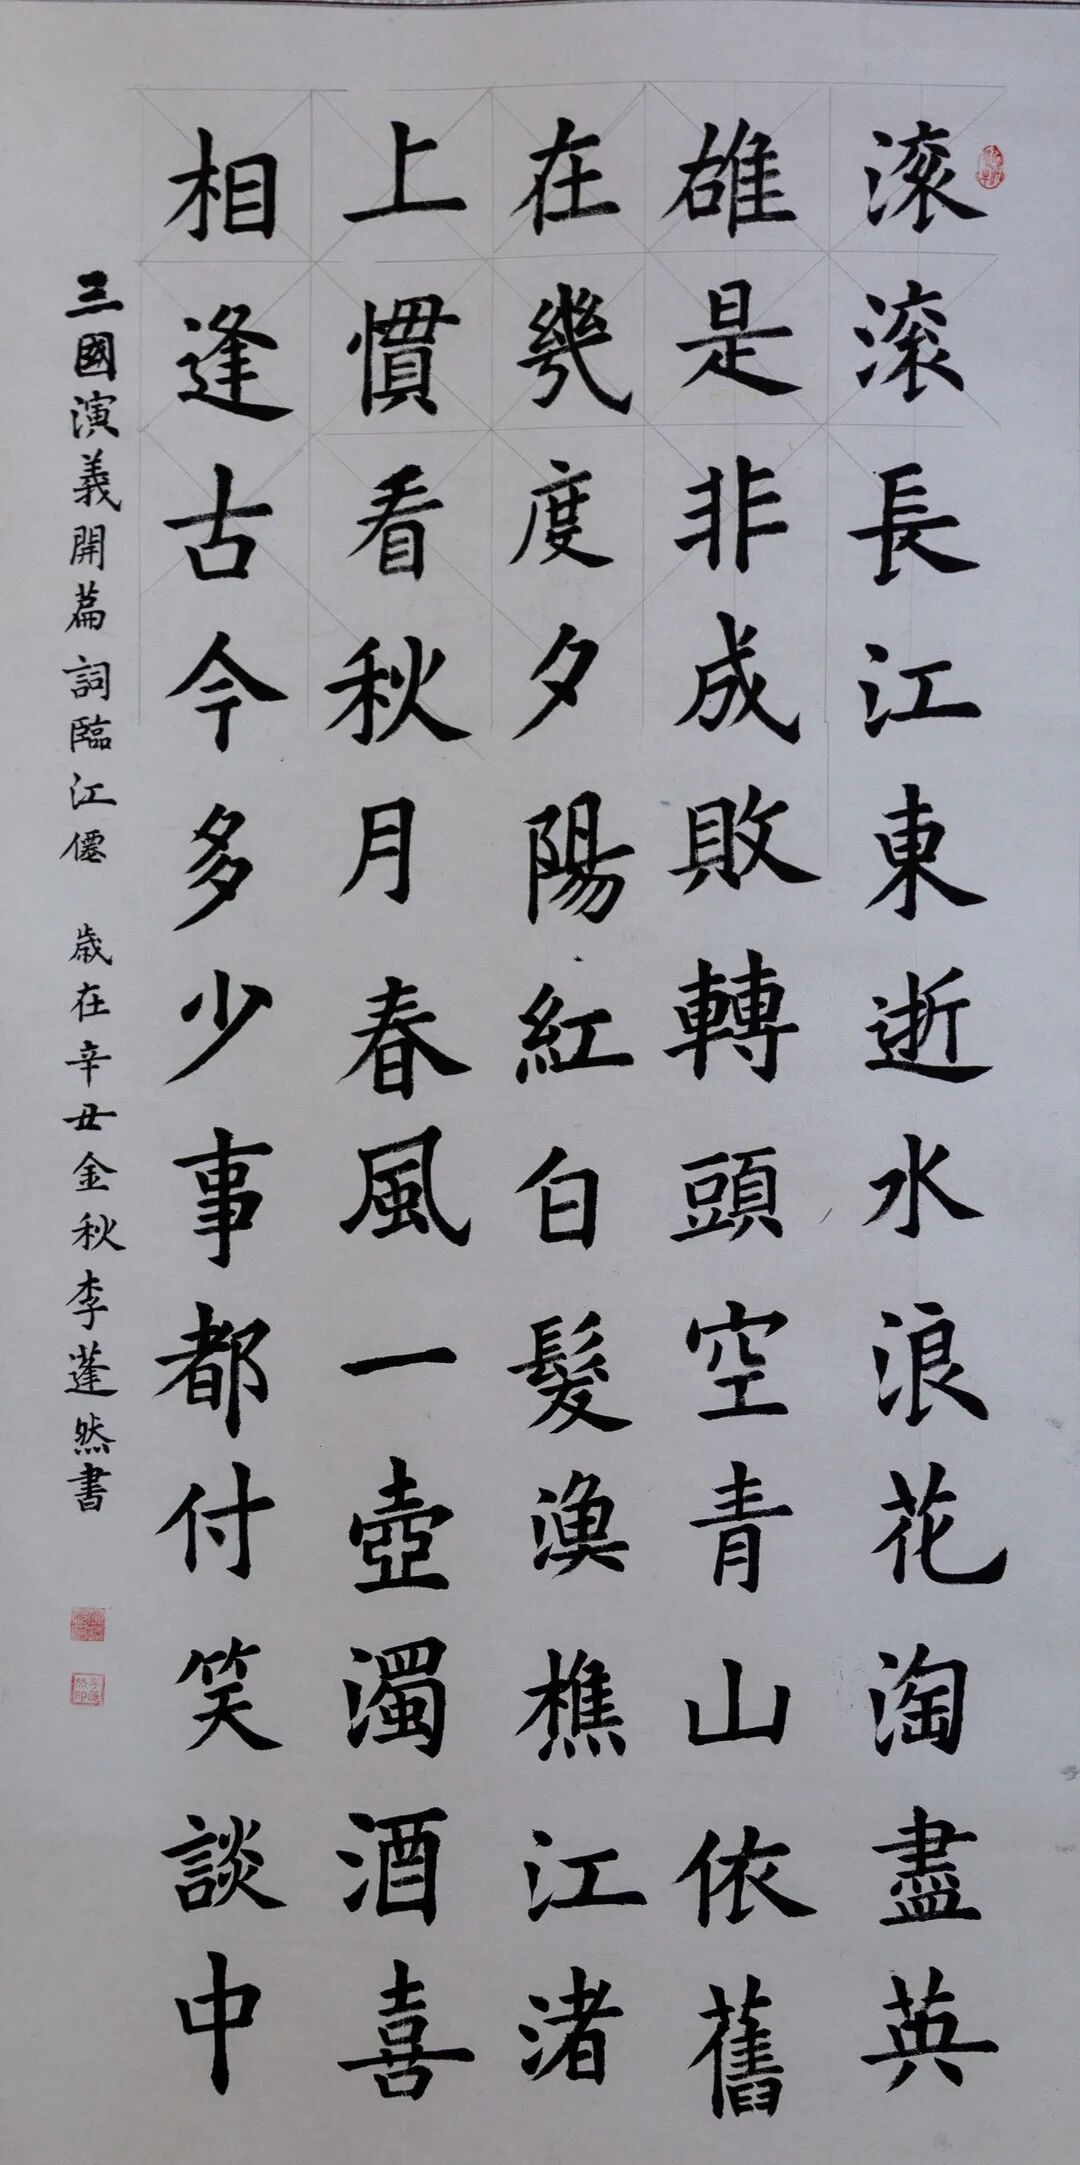 滚滚長江東逝水浪花淘盡英
雄是非成敗轉頭空青山依舊
在幾度夕陽紅白髮漁樵江渚
上慣看秋月春風一壺濁酒喜
相逢古今多少事都付笑談中
三國演義開篇詞臨江僊 歲在辛丑金秋李蓬然書